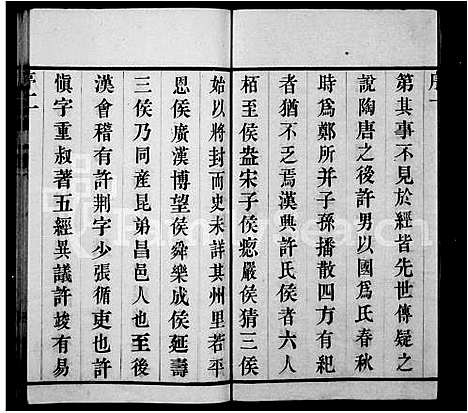 序一
第其事不見於經皆先世傳疑之
說陶唐之後許男以國爲氏春秋
時爲鄭所并子孫播散四方有聞
者猶不乏焉漢興許氏侯者六人
栢至侯盎宋子侯瘛嚴侯猜三侯
始以將封而史未詳其州里若平
恩侯廣漢博望侯舜樂成侯延壽
三侯乃同産昆弟昌邑人也至後
漢會稽有許荆字少張循吏也許
愼字重叔著五經異議許竣有易
序二